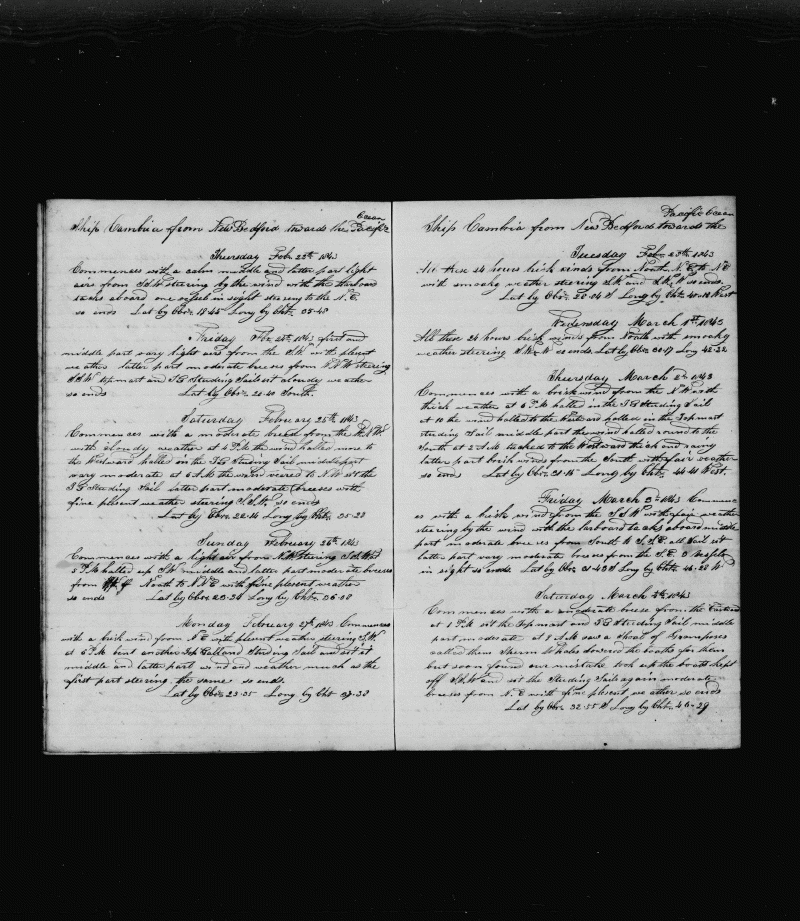 Ocean
Ship Cambria from New Bedford towards the Pacific
Thursday Feb. 23th 1843
Commences with a calm middle and latter part light
airs from S.d.W steering by the wind with the Larboard
tacks aboard one in sight steering to the N. E.
so ends Lat by Obr. 18-45 Long by Cht. 35-48
Friday Feb 24th 1843 first and
middle part vary light airs from the S.W with plesent
weather latter part moderate breeses from steering
S.S.W topmart and T.G Studing Sail set cloudy weather
so ends Lat by Obr. 21-40 South.
Saturday February 25th 1843
Commences with a moderate breese from the
with cloudy weather at 4 P.M the wind halled more to
the Westward halled in the T.G Studing Sail middle part
vary moderate at 6 A.M the wind veered to N.W set the
T G Studing Sail latter part moderate breeses with
fine plesent weather steering S.S.W. so ends
Lat by Obr. 22-14 Long by Cht. 35-28
Sunday February 26th 1843
Commences with a light air from N.W Steering
5 P.M halled up S.W middle and latter part moderate breeses
from North to N.N.E with fine plesent weather
so ends Lat by Obr. 23-24 Long by Cht. 36-08
Monday February 27th 1843 Commences
with a brisk wind from N.E with plesent weather steering S.W.
at 6 P.M bent another Top Galland Studing Sail and set it
middle and latter part wind and weather much as the
first part steering the same so ends.
Lat by Obr. 25-35 Long by Cht. 37-38
Pacific Ocean
Ship Cambria from New Bedford towards the
Tuesday Feb. 28th 1843
All these 24 hours brick winds from North. N. E. to N.E
with smoaky weather steering S.W. and S.W. W so ends.
Lat by Obr. 28-24 S Long by Cht. 40-18 West
Wednesday March 1st 1843
All these 24 hours brick winds from North with smoaky
weather steering S.W. W so ends Lat by Obr. 30-17 Long 42-22
Thursday March 2d 1843
Commences with a brick wind from the N with
thick weather at 6 P.M halled in the T.G Studing Sail
at 10 the wind halled to the Westward halled in the Topmart
studing Sail middle part the wind halled round to the
South at 2 A.M tacked to the Westward thick and rainy
latter part brick winds from the South with fair weather
so ends Lat by Obr. 31-15 Long by Cht. 44-40 West.
Friday March 3d 1843 Commenc
es with a brick wind from the S.d.W with fair weather
steering by the wind with the Larboard tacks aboard middle
part moderate breeses from South to S.S.E. all Sail set
latter part vary moderate breeses from the S.E. 3
in sight so ends. Lat by Obr. 31-43 S Long by Cht. 46-28 W
Saturday March 4th 1843
Commences with a moderate breese from the Eastward
at 1 P.M set the Topmart and T.G Studing Sail middle
part moderate at 7 A.M saw a Shoal of Grampuses
called them Sperm Whales lowered the boats for them
but soon found our mistake took up the boats kept
off S.S.W and set the Studing Sails again moderate
breeses from N.E with fine plesent weather so ends
Lat by Obr. 32-55 S Long by Cht. 46-29